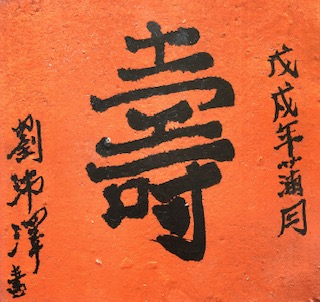 戊戌年蒲月
壽
劉澤書